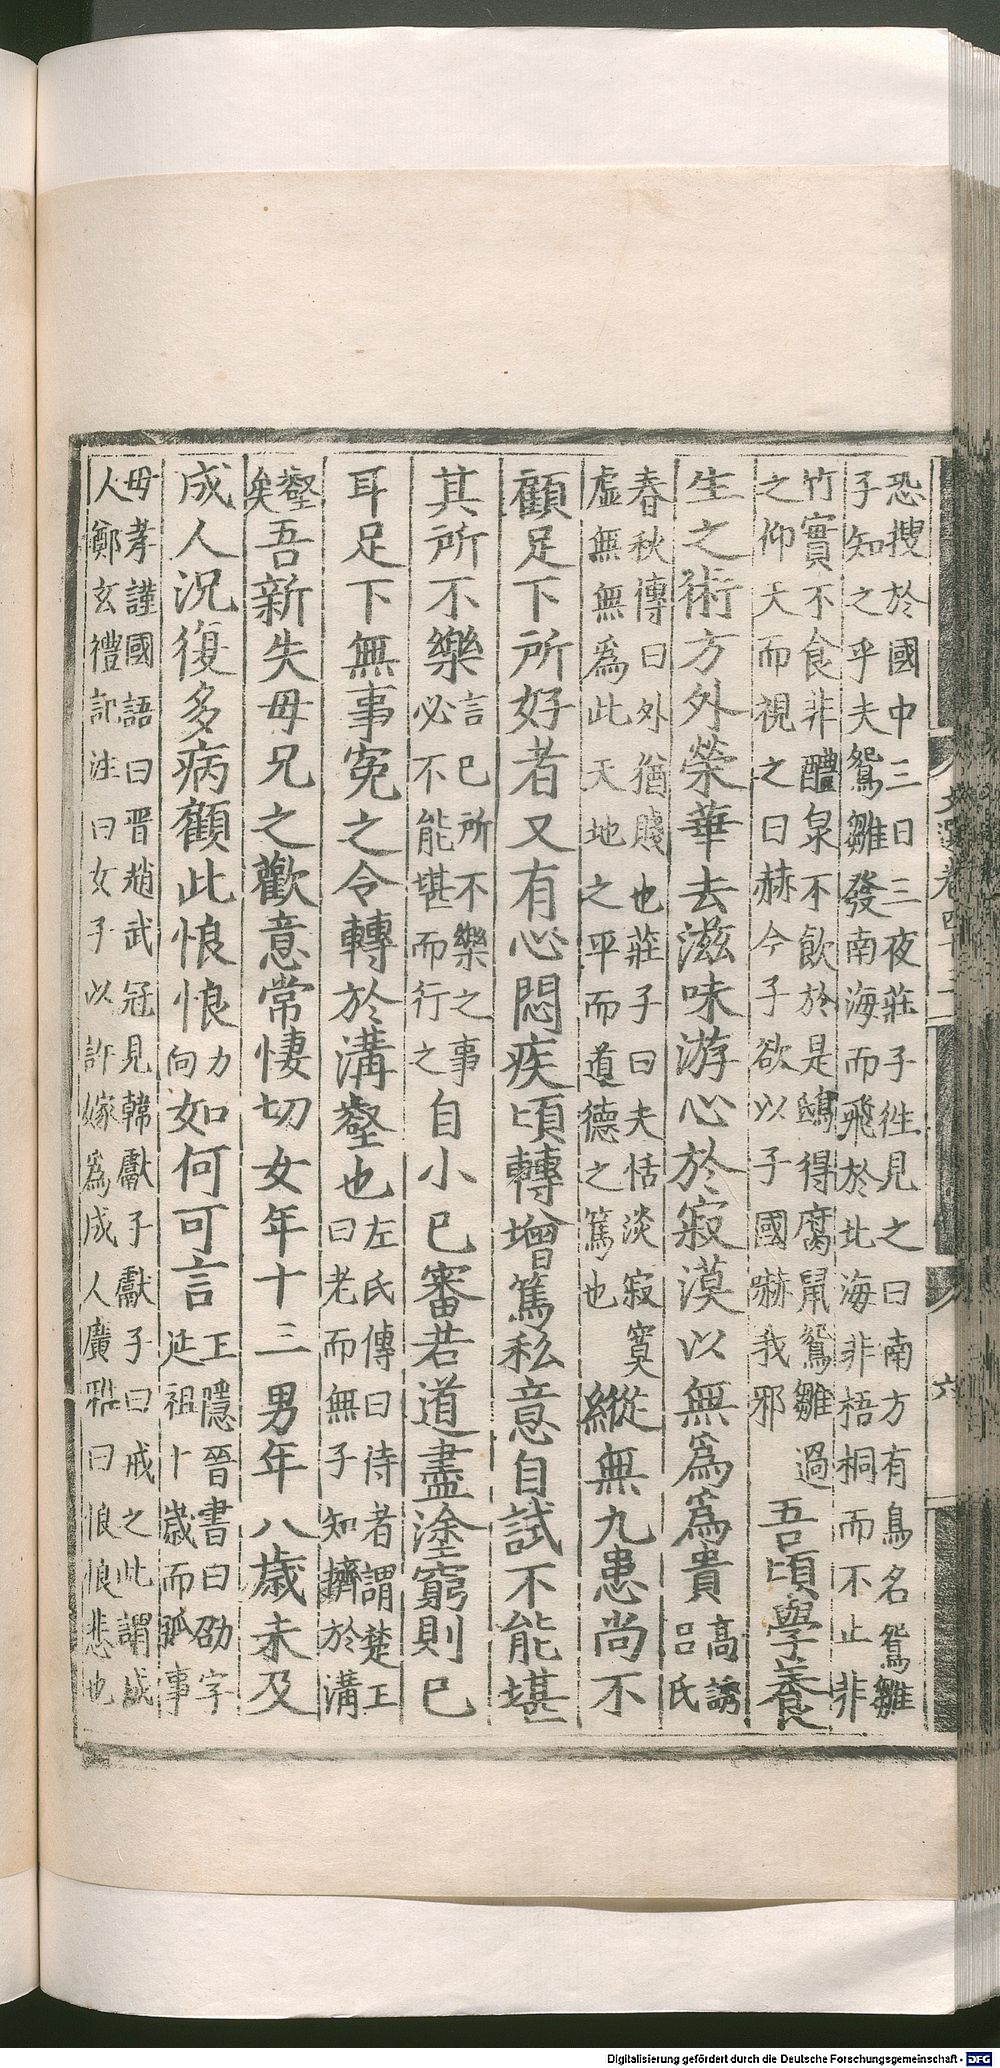 文選卷四十三
六
恐搜於國中三日三夜莊子徃見之曰南方有鳥名鴛雛
子知之乎夫鴛雛發南海而飛於北海非梧桐而不止非
竹實不食非醴泉不飲於是鴟得腐鼠鴛雛過
之仰天而視之曰赫今子欲以子國嚇我邪
吾頃學養
生之術方外榮華去滋味游心於寂漠以無爲爲貴
高誘
呂氏
春秋傳曰外猶賤也莊子曰夫恬淡寂寞
虛無無爲此天地之平而道德之篤也
縱無九患尚不
顧足下所好者又有心悶疾頃轉增篤私意自試不能堪
其所不樂
言已所不樂之事
必不能堪而行之
自小已審若道盡塗窮則已
耳足下無事冤之令轉於溝壑也
左氏傳曰侍者謂楚王
曰老而無子知擠於溝
壑
矣
吾新失母兄之歡意常悽切女年十三男年八歲未及
成人況復多病顧此悢悢
力
向
如何可言
王隱晉書曰劭字
延祖十歲而孤事
母孝謹國語曰晉趙武冠見韓獻子獻子曰戒之此謂成
人鄭玄禮記注曰女子以許嫁爲成人廣雅曰悢悢悲也
Digitalisierung gefördert durch die Deutsche Forschungsgemeinschaft - DFG